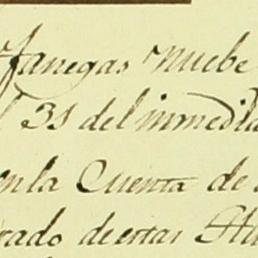 Fanegas nuebe
31 del inmedia
en la Cuenta de
rado de estas